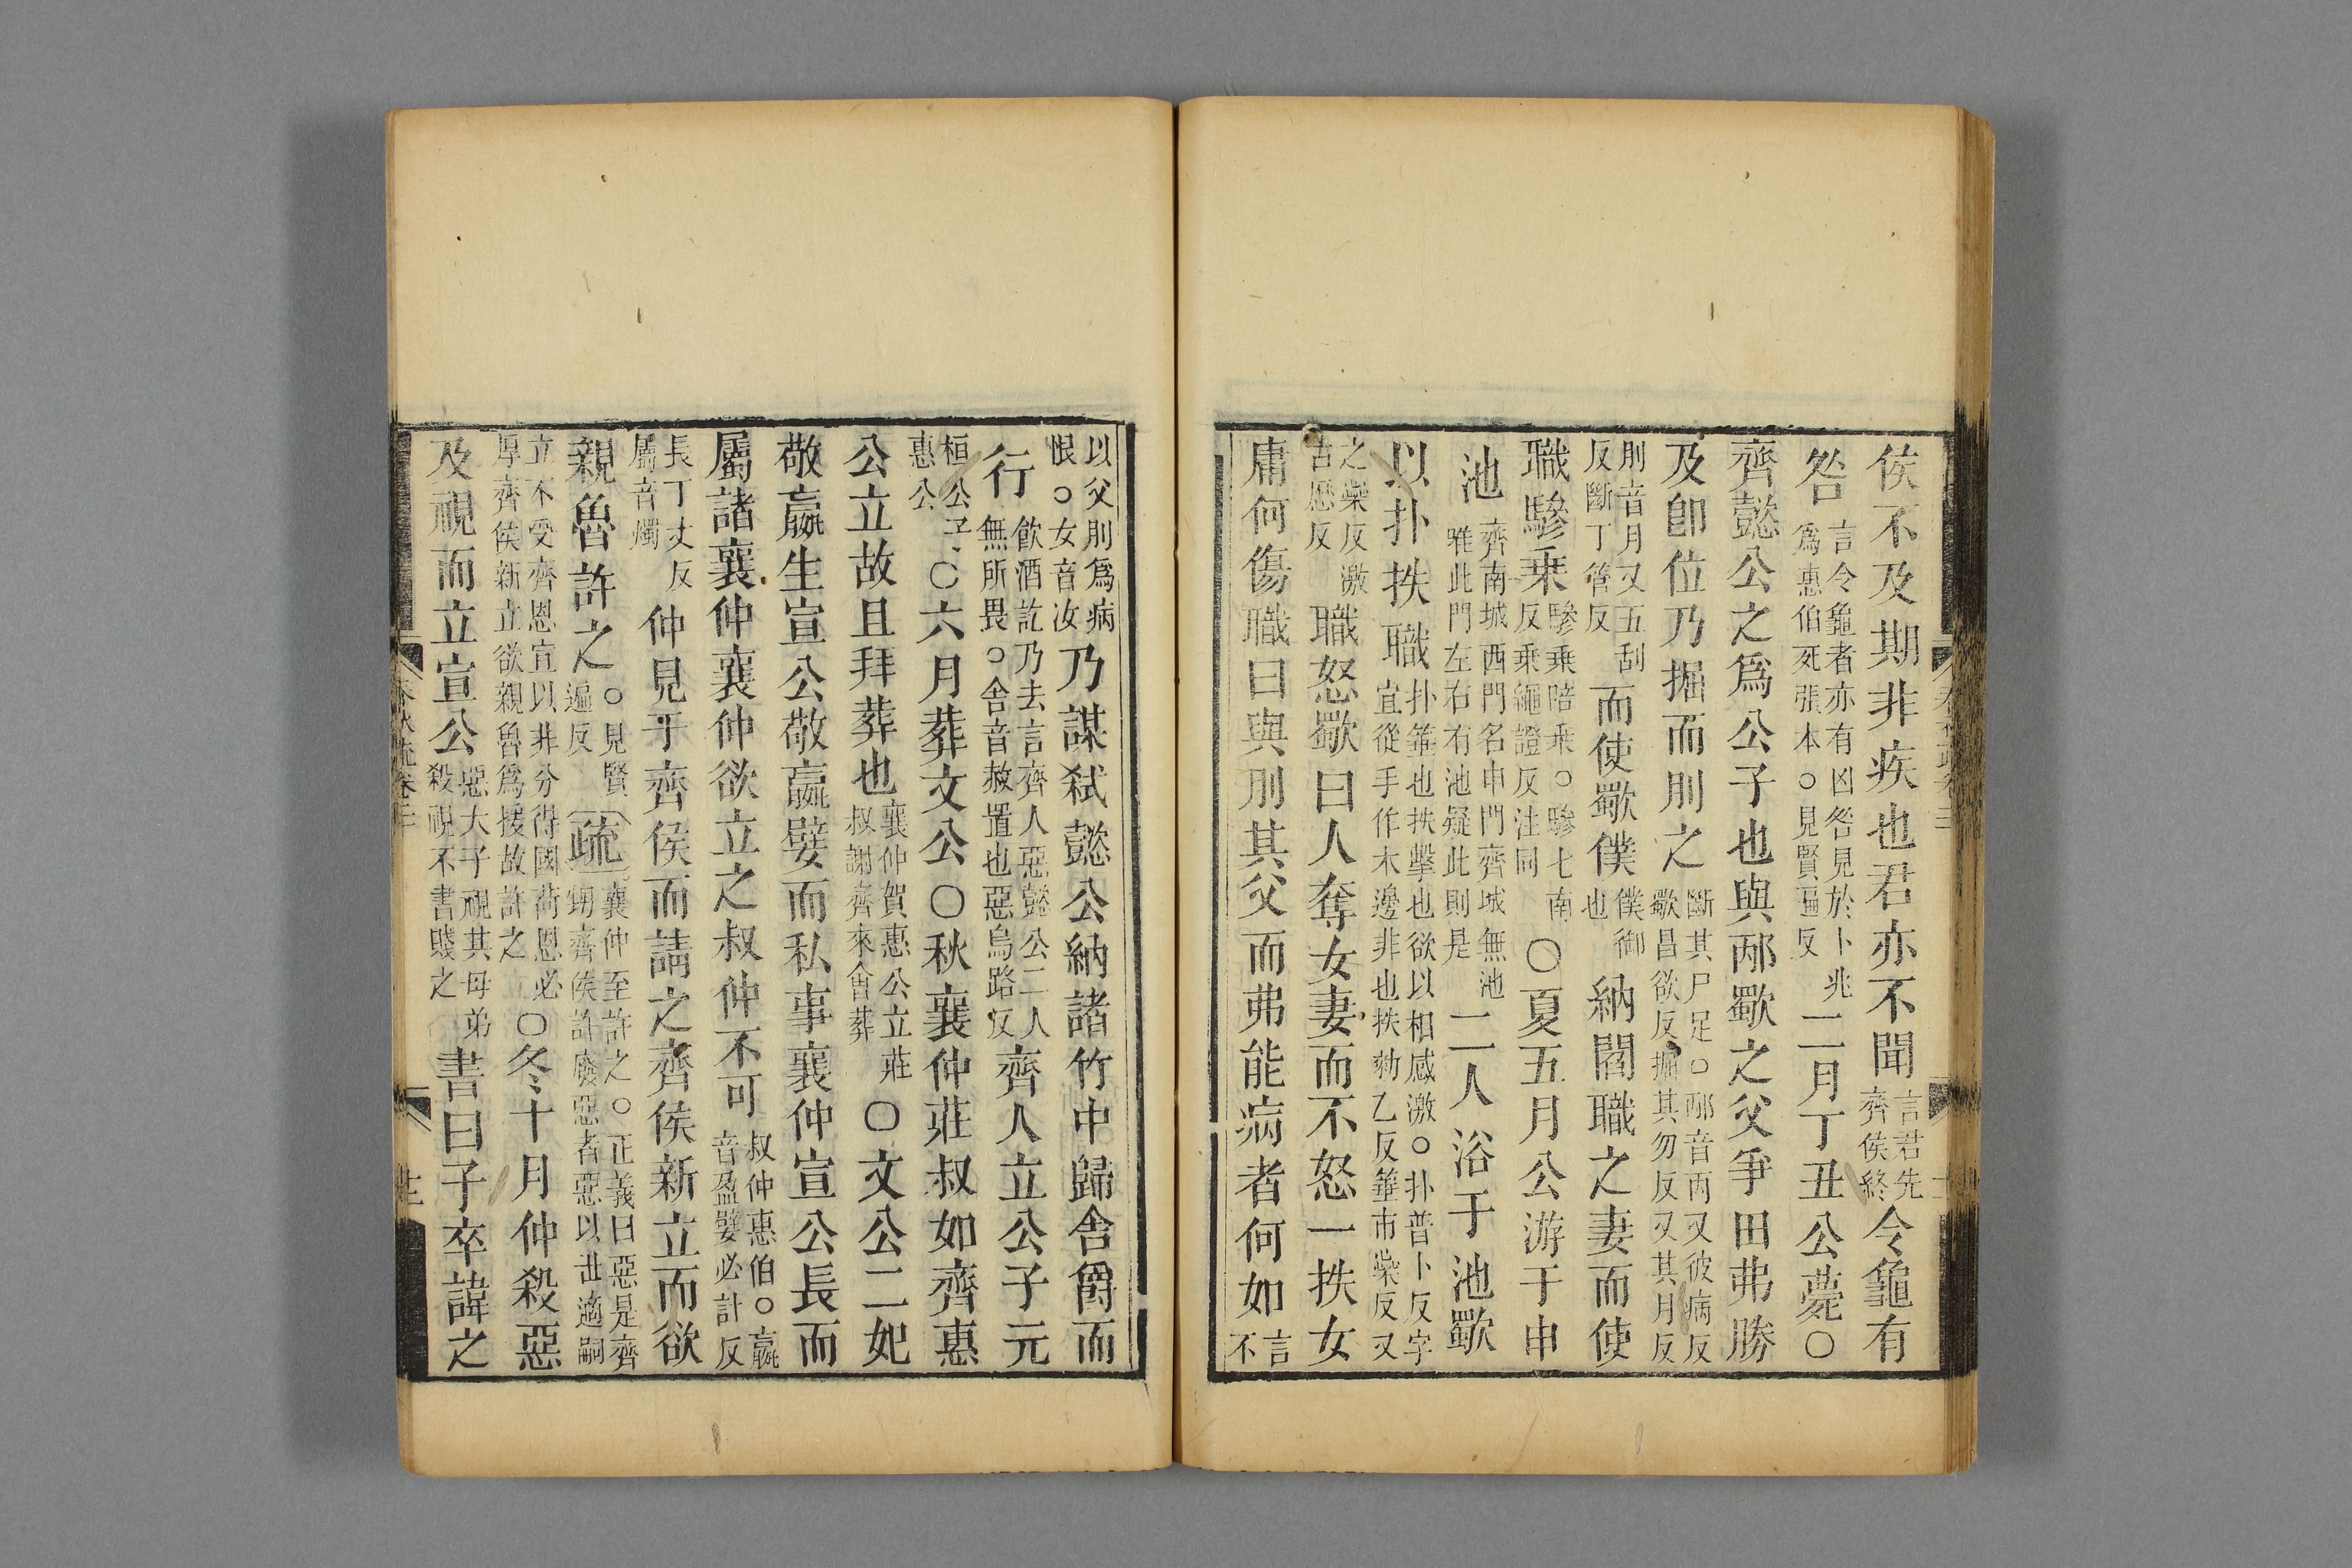 侯不及期非疾也君亦不聞言君先齊侯終令龜有
咎言令龜者亦有凶咎見於卜兆爲惠伯死張本○見賢遍反二月丁丑公薨○
齊懿公之爲公子也與邴歜之父爭田弗勝
及卽位乃掘而刖之斷其尸足○邴音丙又彼病反歜昌欲反掘其勿反又其月反
刖音月又五刮反斷丁管反而使歜僕僕御也納閻職之妻而使
職驂乗驂乗陪乗○驂七南反乗繩證反注同○夏五月公游于申
池齊南城西門名申門齊城無池唯此門左右有池疑此則是二人浴于池歜
以扑抶職扑箠也抶擊也欲以相感激○扑普卜反字宜從手作木邊非也抶勑乙反箠市蘂反又
之蘂反激古歷反職怒歜曰人奪女妻而不怒一抶女
庸何傷職曰與刖其父而弗能病者何如言不
以父刖爲病恨○女音汝乃謀弑懿公納諸竹中歸舍爵而
行飲酒訖乃去言齊人惡懿公二人無所畏○舍音赦置也惡烏路反齊人立公子元
桓公子惠公○六月葬文公○秋襄仲莊叔如齊惠
公立故且拜葬也襄仲賀惠公立莊叔謝齊來會葬○文公二妃
敬嬴生宣公敬嬴嬖而私事襄仲宣公長而
屬諸襄仲襄仲欲立之叔仲不可叔仲惠伯○嬴音盈嬖必計反
長丁丈反屬音燭仲見于齊侯而請之齊侯新立而欲
親魯許之○見賢遍反疏襄仲至許之○正義曰惡是齊甥齊侯許廢惡者惡以世適嗣
立不受齊恩宣以非分得國荷恩必厚齊侯新立欲親魯爲援故許之○冬十月仲殺惡
及視而立宣公惡大子視其母弟殺視不書賤之書曰子卒諱之